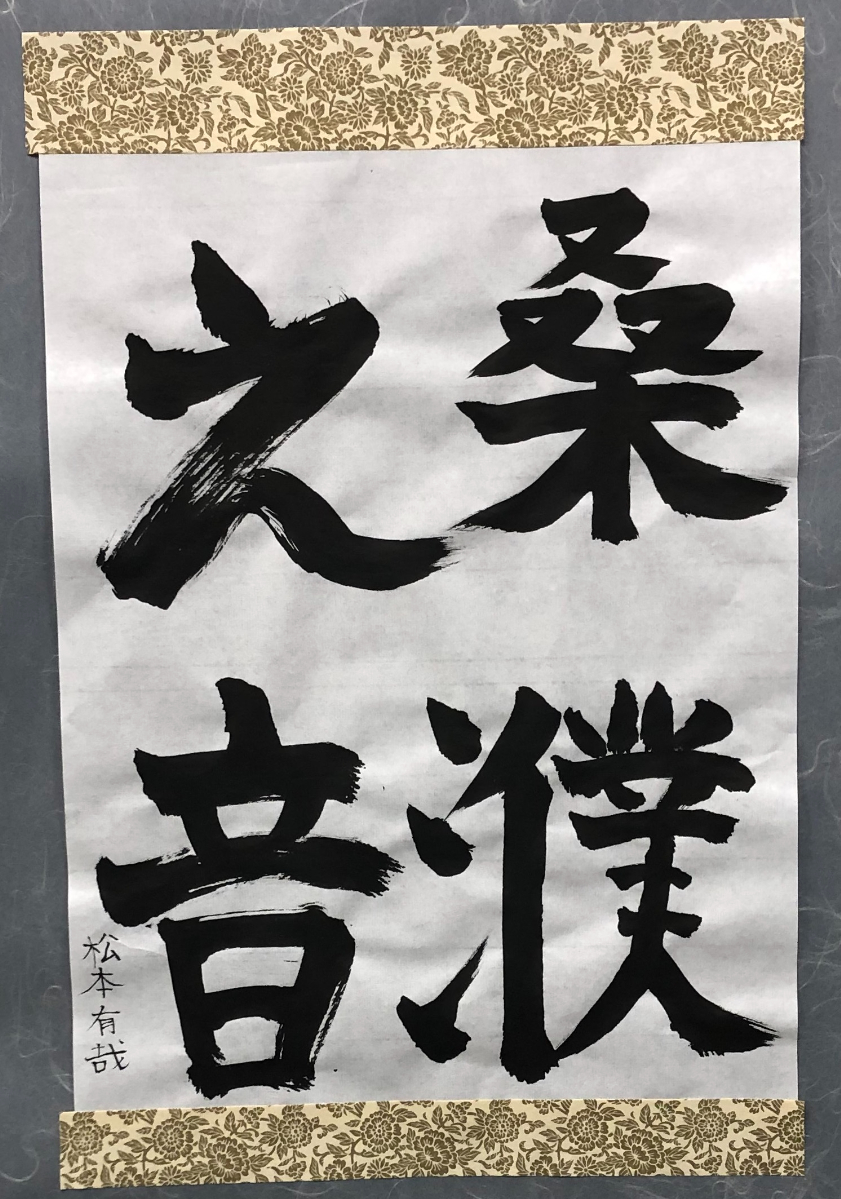 桑濮
之音
松本有哉